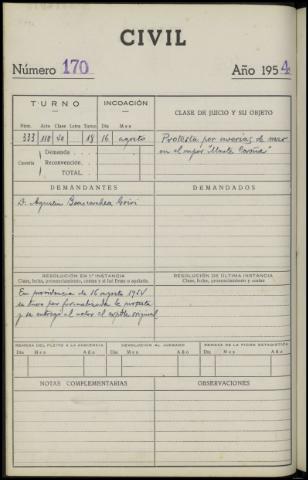 CIVIL
Número 170 Año 1954
TURNO INCOACIÓN CLASE DE JUICIO Y SU OBJETO
Núm. Acto Clase Letra Turno Día Mes
333 118 20 18 16 agosto Protesta por averías de mar
Cuantía Demanda en el vapor "Monte
Reconvención
TOTAL
DEMANDANTES DEMANDADOS
D. Agustín
RESOLUCIÓN EN 1ª INSTANCIA RESOLUCIÓN DE ÚLTIMA INSTANCIA
Clase, fecha, pronunciamiento, costas y si fué firme o apelada. Clase, fecha, pronunciamiento y costas
En providencia de 16 agosto 1954
se tuvo por formalizada la protesta
y se entregó al actor el original
REMESA DEL PLEITO A LA AUDIENCIA DEVOLUCIÓN AL JUZGADO REMESA DE LA FICHA ESTADÍSTICA
Día Mes Año Día Mes Año Día Mes Año
NOTAS COMPLEMENTARIAS OBSERVACIONES